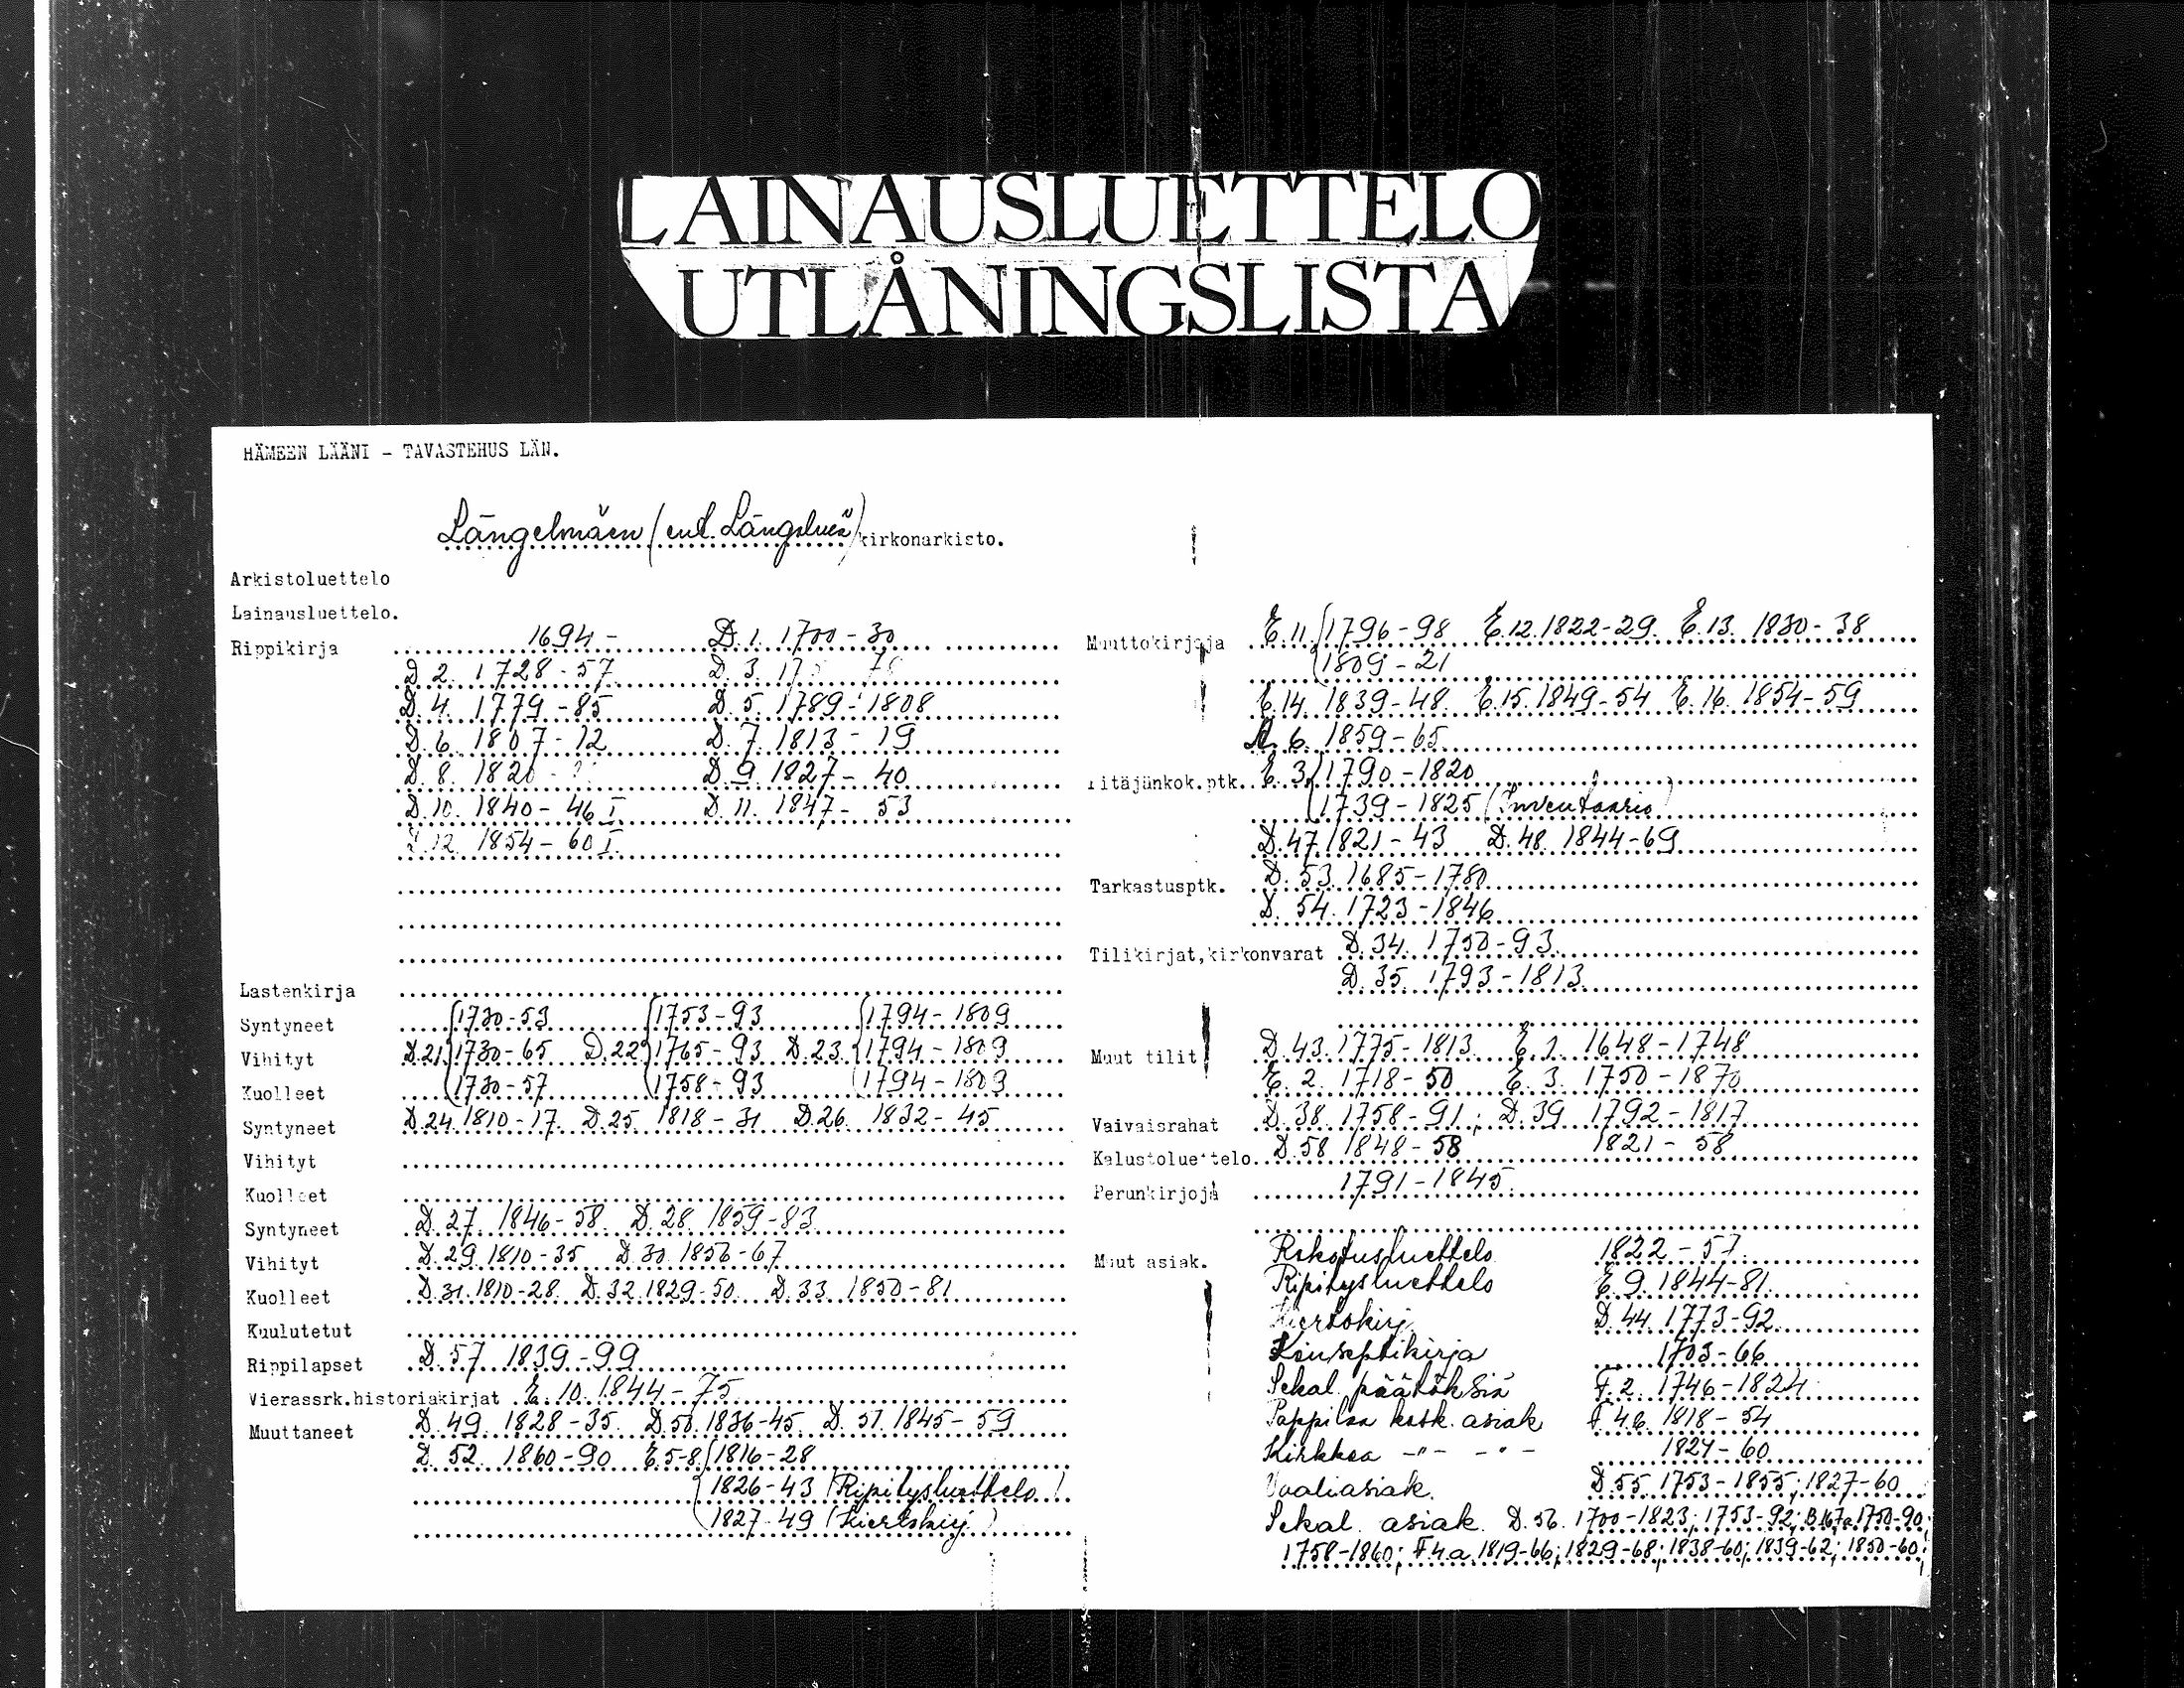 LAINAUSLUETTELO
UTLÅNINGSLISTA
HÄMEEN LÄÄNI - TAVASTEHUS LÄN.
Längelmäen (ent. Längelmä) kirkonarkisto.
Arkistoluettelo
Lainausluettelo.
Rippikirja 1694- D.1. 1700-30
D.2. 1728-57 D.3.
D.4. 1779-85 D.5. 1789-1808
D.6. 1807-12 D.7. 1813-19
D.8. D.9. 1827-40
D.10. 1840-46 I D.11. 1847-53
D.12. 1854-60 I
Lastenkirja
Syntyneet {1730-53 {1753-93 {1794-1809
Vihityt D.21.{1730-65 D.22{1765-93 D.23.{1794-1809
Kuolleet {1730-57 {1758-93 {1794-1809
Syntyneet D.24.1810-17. D.25. 1818-31 D.26. 1832-45
Vihityt
Kuolleet
Syntyneet D.27. 1846-58. D.28. 1859-83
Vihityt D.29.1810-35 D.30.1856-67
Kuolleet D.31.1810-28. D.32.1829-50. D.33. 1850-81
Kuulutetut
Rippilapset D.57 1839-99
Vierassrk.historiakirjat E.10. 1844-75
Muuttaneet D.49. 1828-35. D.50.1836-45. D.51.1845-59
D.52. 1860-90 E.5-8.{1816-28
{1826-43 (Ripitysluettelo)
{1827-49 (Kiertokirj.)
Muuttokirjoja E.11.{1796-98 E.12.1822-29. E.13. 1830-38
{1809-21
E.14. 1839-48. E.15.1849-54 E.16. 1854-59
A.6. 1859-65
Pitäjänkok.ptk. E.3.{1790-1820
{1739-1825 (Inventaario)
D.47.1821-43 D.48. 1844-69
Tarkastusptk. D.53.1685-1780
D.54.1723-1846
Tilikirjat,kirkonvarat D.34. 1750-93
D.35. 1793-1813
Muut tilit D.43.1775-1813 E.1. 1648-1748
E.2. 1718-50 E.3. 1750-1870
Vaivaisrahat D.38.1758-91; D.39 1792-1817
Kalustoluettelo D.58 1848-58 1821-58
Perunkirjoja 1791-1845
Muut asiak. Rokotusluettelo 1822-57
Ripitysluettelo E.9.1844-81
Kiertokirj. D.44.1773-92
Konseptikirja 1703-66
Sekal. päätöksiä F.2. 1746-1824
Pappilaa kosk. asiak. F.4.b. 1818-54
Kirkkoa -"- -"- 1824-60
Vaaliasiak. D.55.1753-1855; 1827-60
Sekal. asiak. D.56. 1700-1823; 1753-92; B167a.1750-90;
1758-1860; F.4.a.1819-66; 1829-68; 1838-60; 1839-62; 1850-60;